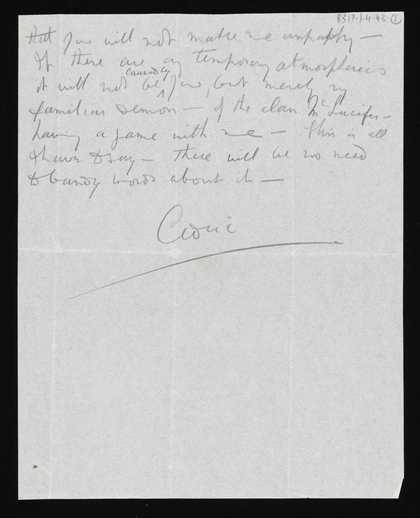 8317.1.4.43 2
that you will not make me unhappy —
If there are any temporary atmospherics
it will not be caused by you, but merely my
familiar demon — of the clan McLucifer —
having a game with me — This is all
I have to say — there will be no need
to bandy words about it —
Cedric